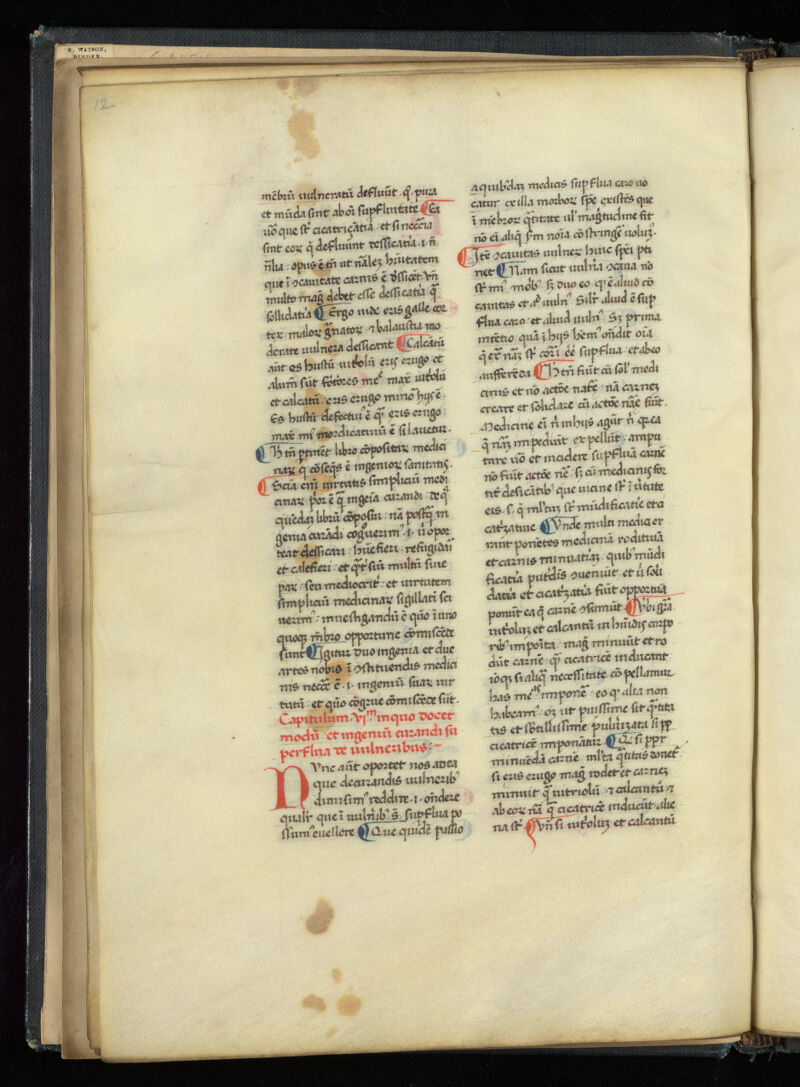 R. WATSON,
BINDER
12
mēbrū uulneratū defluūt · q̄ · pura
et mūda sint ab oī supfluitate ¶ Ea
uō que st̄ cicatriçatia · et si neccīa
sint eoꝝ q̄ defluunt dessicatia · i · ñ
ñlia · opus ē tñ ut nāleꝫ hūitatem
que ī ɔcauitate carnis ē dissicēt · Vñ
multo mag̃ debet esse dessicatia q̄
sollidatīa ¶ Ergo inde eris galle cor
tex · maloꝝ gñatoꝝ · ⁊ balaustia mo
derate uulnera dessicant ¶ Calcātū
aūt es hustū uit̓olū eris erugo et
alum̄ sūt fortiores
et calcatū · eris erugo minoᷣ hijs ē ·
Es hustū defectiui ē q̄ eris erugo ·
max̄ mordicatiuū ē si lauetur ·
¶ H tñ ptinēt libro cōpositiꝝ medici
naꝝ q̄ cōseq̄s ē ingenioꝝ sanitatis ·
¶ Scīa eīm uirtutis simpliciū medi
cinaꝝ por ē q̄ ingeīa curandi · de q̓
quedaꝫ librū cōposui · nā postq̄ in
genia curādi cogᷣuerim᷒ · i · ū opor
teat dessicari · hūefieri · refrigidari
et calefieri · et q̄t̓ siū multū siue
paꝝ · seu mediocrit̓ · et uirtutem
simpliciū medicinaꝝ sigillati sci
uerim᷒ · inuestigandū ē q̄uo ī uno
quoqꝫ mbro opportune cōmiscēde
sunt ¶ Igitur duo ingenia et due
artes nobis ī ɔstituendis medici
nis neccē ē · i · ingeniū suaꝝ uir
tutū · et quo cōgrue cōmiscēde sūt ·
Capitulum · vjᵐ in quo docet
modū · et ingeniū curandi su
perflua de uulneribus :~
Nunc aūt oportet nos adea
que de curandis uulnerib᷒
diuisim᷒ reddire · i · oñdere
qualr̄ que ī uulñib᷒ s̄ supflua po
ssum᷒ euellere ¶ Que quidē passio
a quib᷒daꝫ medicis supflua caro uo
catur ex illa morboꝝ spē existēs que
ī mēbroꝝ q̄titate ul᷒ mag̃tudine fit
nō eī aliq̄ s̄m noīa cōstringē uoluꝫ ·
¶ Itē ɔcauitas uulneꝝ huic spēi pti
net ¶ Nam sicut uulña ɔcaua nō
st̄ mi᷒ mob᷒ · sꝫ duo eo q᷒ ē aliud cō
cauitas et ad uuln᷒ Silr̄ aliud ē sup
flua caro · et aliud uuln᷒ Sꝫ prima
intētio quā ī hijs hem᷒ oñdit oīa
q̄ ex̄ nāꝫ st̄ coīi ēē supflua · et ab eo
aufferēda ¶ H tñ fiūt cū sol᷒ medi
cinis et nō actōe nat̓e · nā carneꝫ
creare et solidare cū actōe nāe fiūt ·
Medicine eī ñ in hijs agūt ñ q᷒ ea
q̄ nāꝫ impediunt expellūt · ampu
tare uō et incidere supfluā carnē
nō fiūt actōe nē · sꝫ cū medicinis for
tit̓ desicātib᷒ que uicine st̄ ī ūtute
eis · s · q̄ ml̓tuꝫ st̄ mūdificatie et a
catꝫatiue ¶ Vnde multi medici er
rant ponētes medicinā roditiuā
et carnis minuatiaꝫ · quib᷒ mūdi
ficatīa putdīs ɔueniūt · et ū soli
datīa et cicatꝫatīa fiūt opportuīa
ponūt ea q̄ carnē ɔsumūt ¶ Vbi gr̄a
uit̓oluꝫ et calcantū in hūīdis corpo
rib᷒ impoīta · mag̃ minuūt et ro
dūt carnē · q̄ cicatricē inducant
ioqꝫ si aliq̄ necessitate cōpellamur
has me᷒ˢ imponē · eo q᷒ alia non
habeam᷒ · oꝫ ut puissime sit q̄tita
tis et sb̄tillissime puluiꝫata si pp
cicatricē imponātur ¶ Q̄ si ppr̄
minuēdā carnē · ml̓ta q̄titas donet᷒
si eris erugo mag̃ rodet et carneꝫ
minuit q̄ uitriolū · ⁊ calcantū · ⁊
ab eoꝝ nā q᷒ cicatricē inducūt · alie
na st̄ ¶ Vñ si uit̓oluꝫ et calcantū